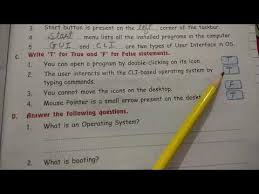 3. Start button is present on the left corner of the taskbar.
4 Start menu lists all the installed programs in the computer.
5 GUI and CLI are two types of User Interface in OS.
C. Write 'T' for True and 'F' for False statements.
1. You can open a program by double-clicking on its icon. T
2. The user interacts with the CLI-based operating system by typing commands. T
3. You cannot move the icons on the desktop. F
4. Mouse Pointer is a small arrow present on the desk T
D. Answer the following questions.
1. What is an Operating System?
2. What is booting?